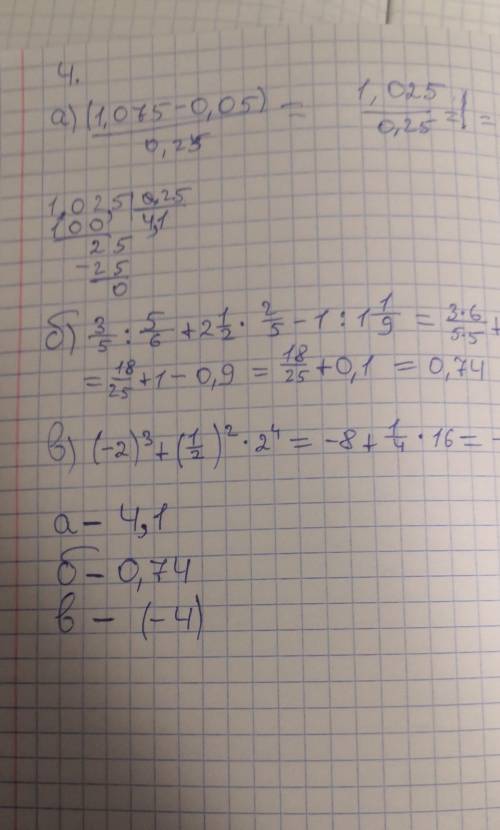 4.
а) (1,075 - 0,05) / 0,25 = 1,025 / 0,25 =
1,025 | 0,25
100 4,1
25
-25
0
б) 3/5 : 5/6 + 2 1/2 · 2/5 - 1 : 1 1/9 = 3·6/5·5 +
= 18/25 + 1 - 0,9 = 18/25 + 0,1 = 0,74
в) (-2)³ + (1/2)² · 2⁴ = -8 + 1/4 · 16 = -
а - 4,1
б - 0,74
в - (-4)